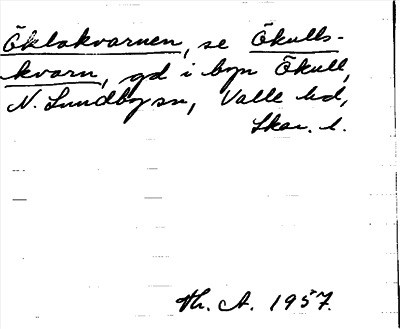 Öklakvarnen, se Ökulls-
kvarn, gd i byn Ökull,
N. Lundby sn, Valle hd,
Skar. l.
Th. A. 1957.